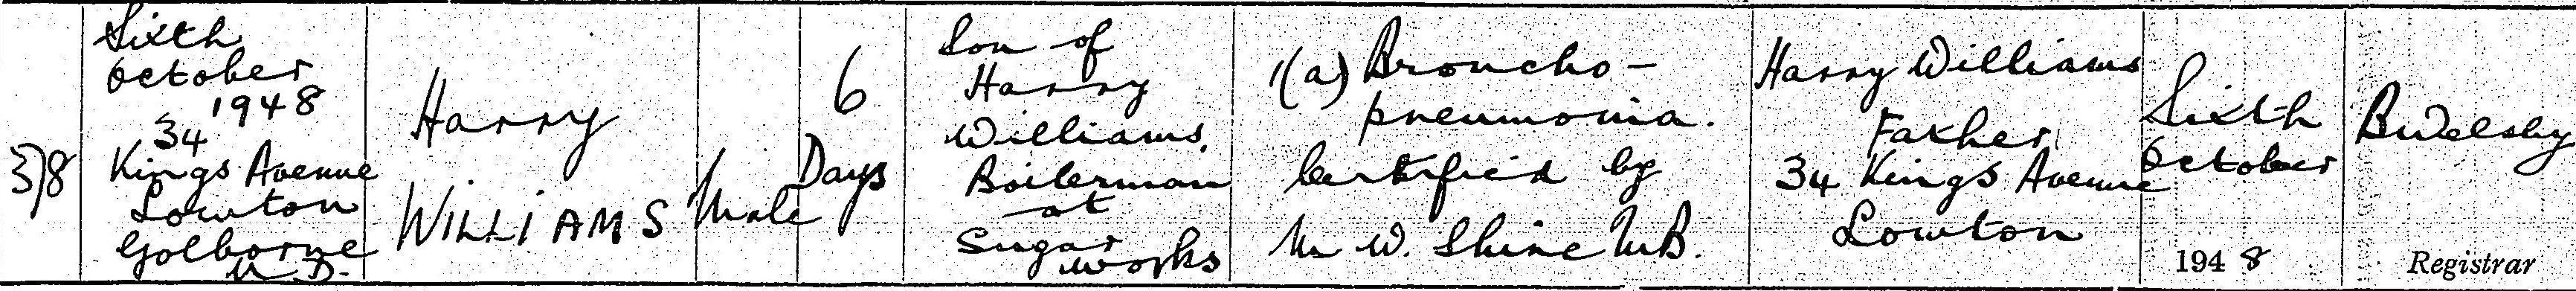 378
Sixth
October
1948
34
Kings Avenue
Lowton
Golborne
U.D.
Harry
WILLIAMS
Male
6
Days
Son of
Harry
Williams.
Boilerman
at
Sugar
works
1(a) Broncho-
pneumonia.
Certified by
M W. Shine M.B.
Harry Williams
Father
34 Kings Avenue
Lowton
Sixth
October
1948
BWelsby
Registrar